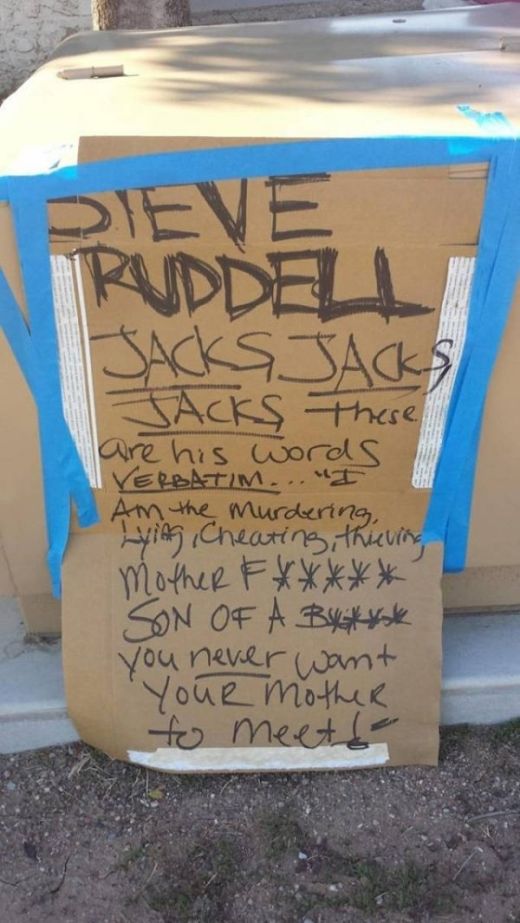 STEVE
RUDDELL
JACKS, JACKS,
JACKS these
are his words
VERBATIM... "I
Am the Murdering,
Lying, Cheating, thieving
Mother F*****
SON OF A B****
you never want
YOUR Mother
to Meet!"